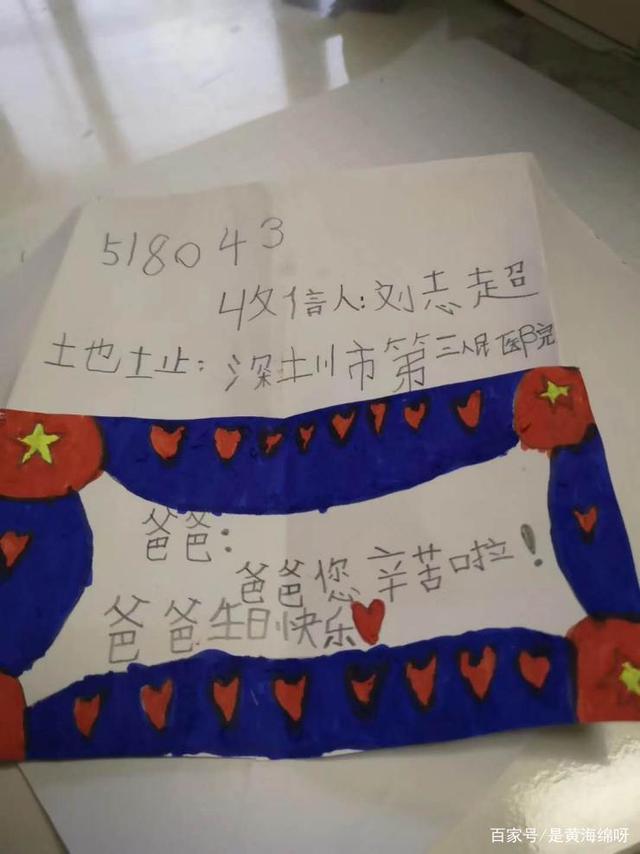 518043
收信人:刘志超
地址:深圳市第三人民医院
爸爸:
爸爸您辛苦啦!
爸爸生日快乐
百家号/是黄海绵呀